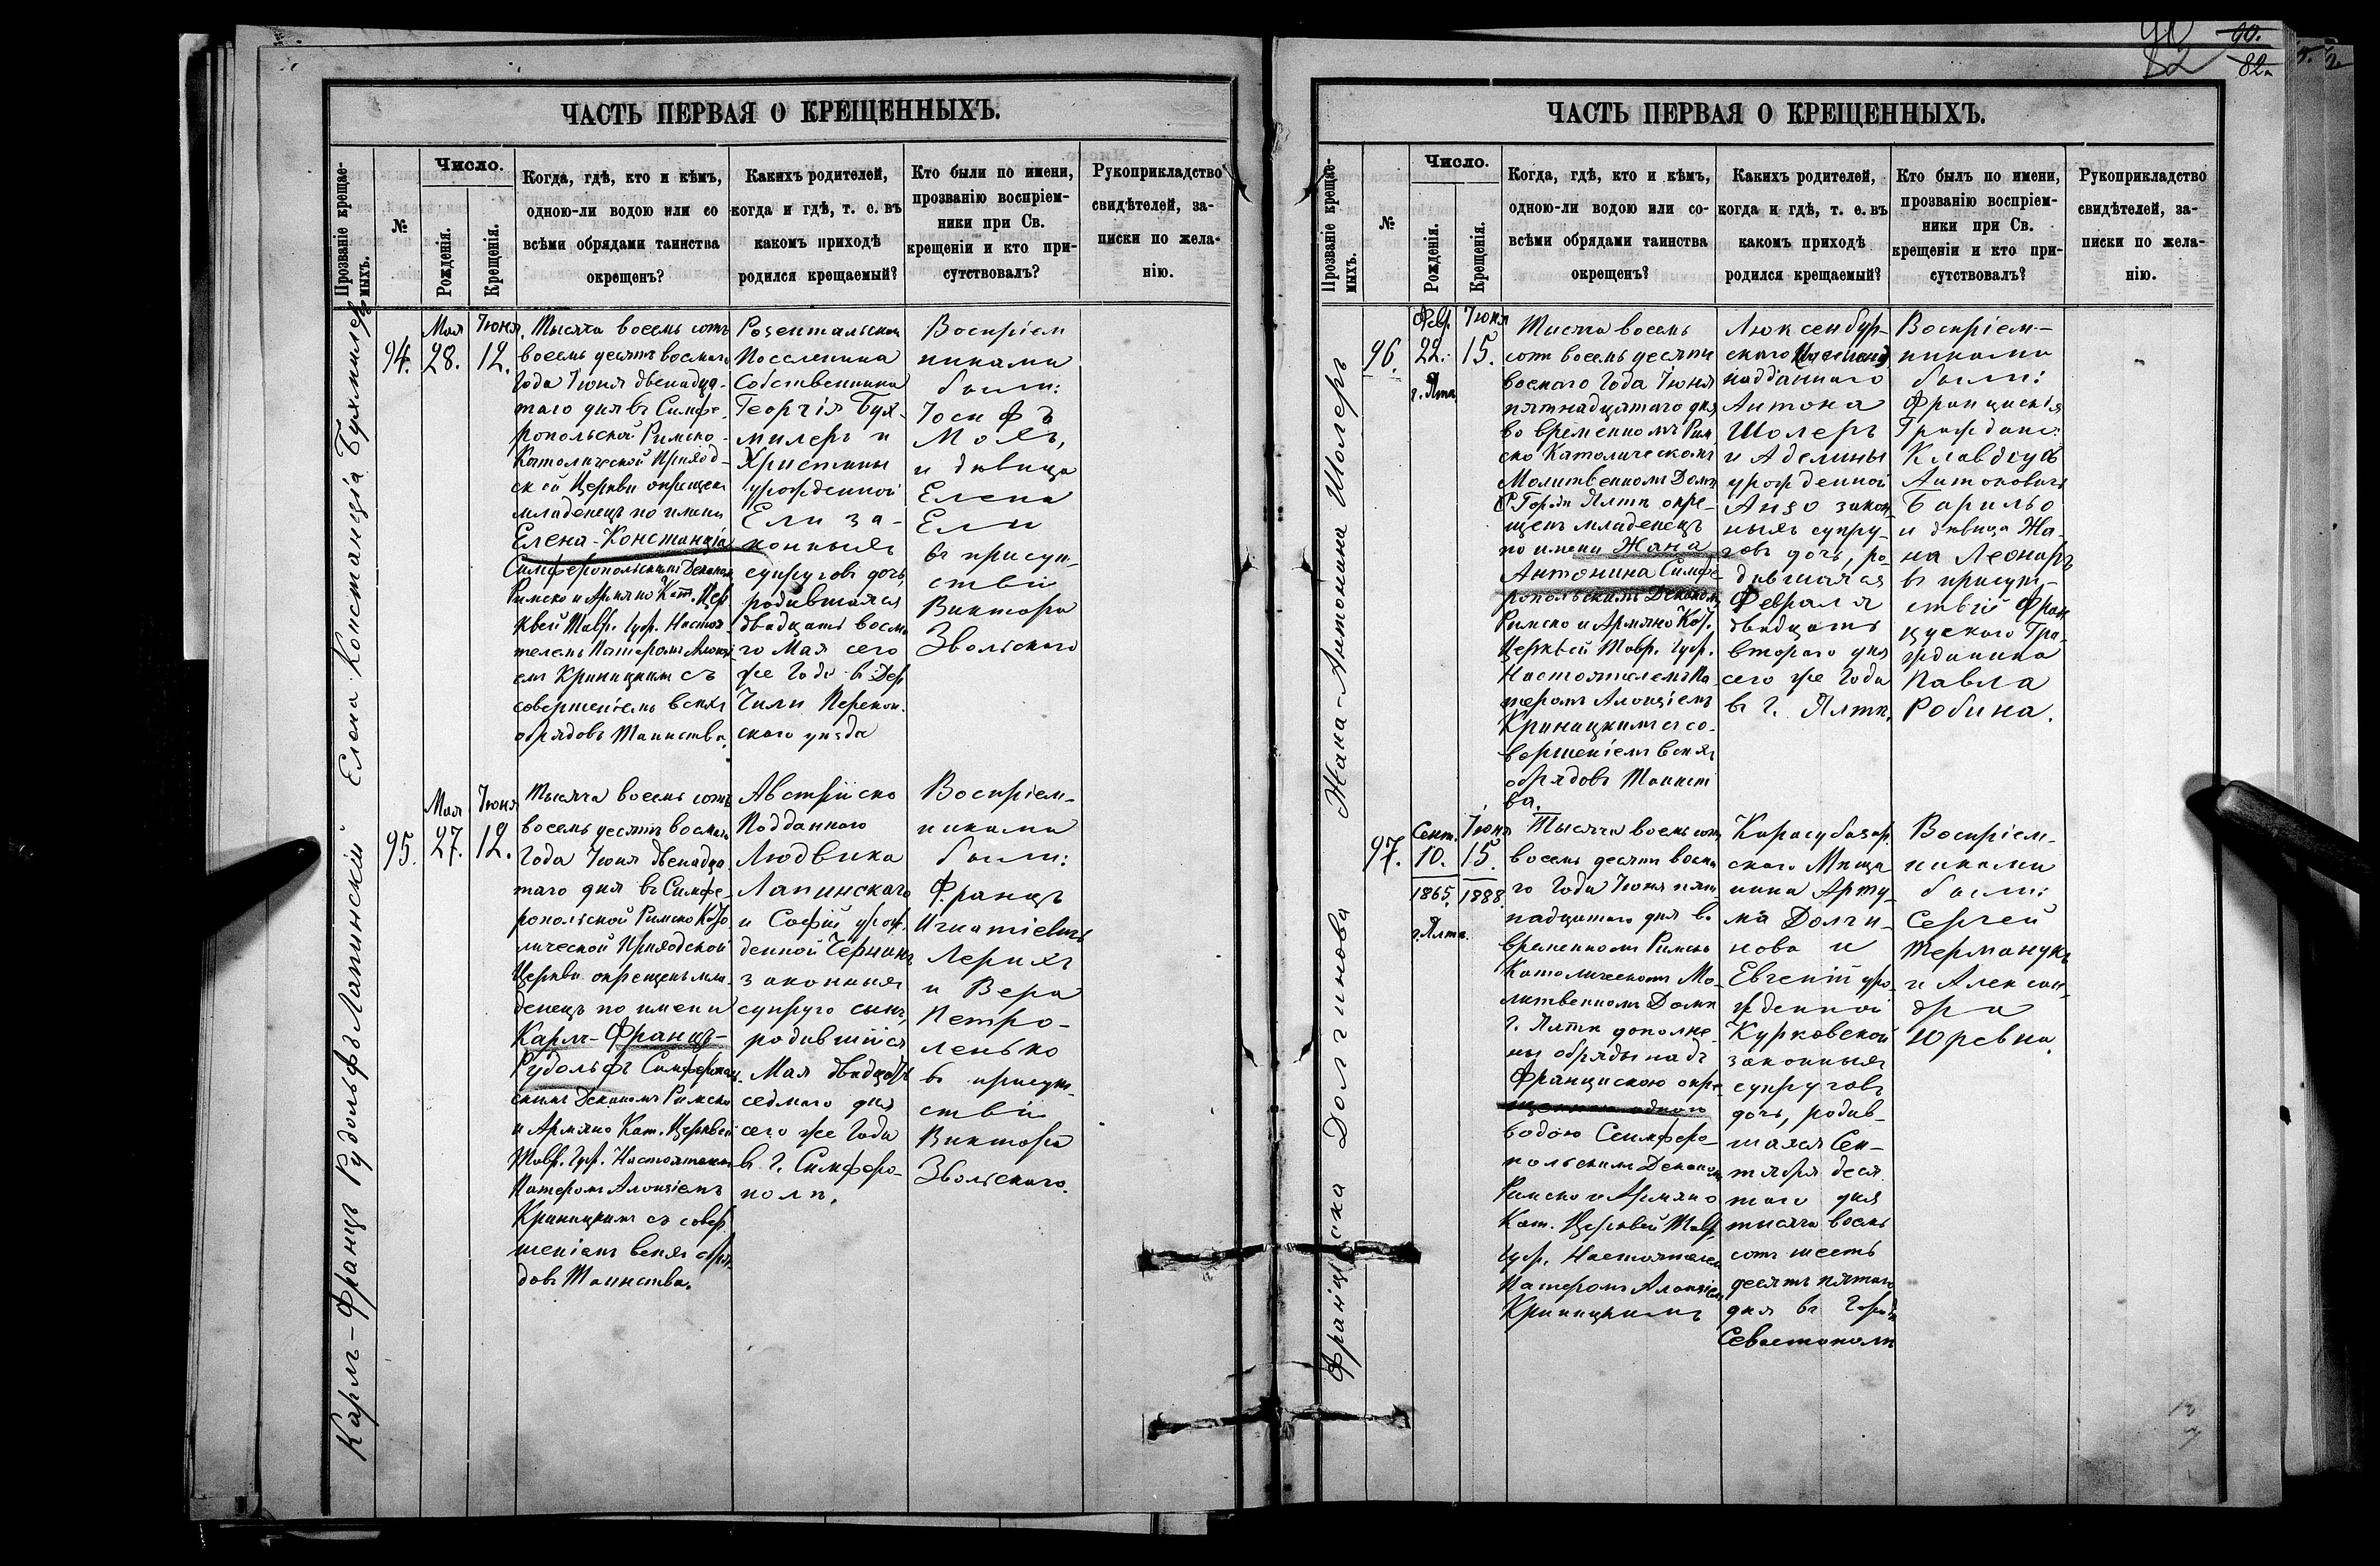 ЧАСТЬ ПЕРВАЯ О КРЕЩЕННЫХЪ.
Прозваніе крещае-
мыхъ.
№
Число.
Рожденія.
Крещенія.
Когда, гдѣ, кто и кѣмъ,
одною-ли водою или со
всѣми обрядами таинства
окрещенъ?
Какихъ родителей,
когда и гдѣ, т. е. въ
какомъ приходѣ
родился крещаемый?
Кто были по имени,
прозванію воспріем-
ники при Св.
крещеніи и кто при-
сутствовалъ?
Рукоприкладство
свидѣтелей, за-
писки по жела-
нію.
Елена Констанція Бухмиллеръ
94.
Мая
28.
Іюня
12.
Тысяча восемь сотъ
восемьдесятъ восмаго
Года Іюня двенадца-
таго дня въ Симфе-
ропольской Римско-
Католической Приход-
ской Церкви окрещенъ
младенецъ по имени
Елена-Констанція
Симферопольскимъ Деканомъ
Римско и Армяно Кат. Цер
квей Тавр. губ. Настоя-
телемъ Патеромъ Алоизі
емъ Криницкимъ съ
совершеніемъ всехъ
обрядовъ Таинства.
Розентальскаго
Поселенина
Собственника
Георгія Бух-
милеръ и
Христины
урожденной
Ели за-
конныхъ
супруговъ дочь,
родившаяся
двадцать восма
го Мая сего
же Года въ Дер
Чили Перекоп.
скаго уѣзда
Воспріем
никами
были:
Іосифъ
Молъ,
и дѣвица
Елена
Ели
въ присут-
ствіи
Виктора
Звольскаго
Карлъ-Францъ Рудольфъ Лапинскій
95.
Мая
27.
Іюня
12.
Тысяча восемь сотъ
восемьдесятъ восмаго
Года Іюня двенадца
таго дня въ Симфе-
ропольской Римско Като
лической Приходской
Церкви окрещенъ мла-
денецъ по имени
Карлъ-Францъ-
Рудольфъ Симферополь
скимъ Деканомъ Римско
и Армяно Кат. Церквей
Тавр. Губ. Настоятелемъ
Патеромъ Алоизіемъ
Криницкимъ съ совер
шеніемъ всехъ обря-
довъ Таинства.
Австрійско
Подданнаго
Людвика
Лапинскаго
и Софіи урож.
денной Чернохъ
законныхъ
супруго сынъ,
родившійся
Мая двадцать
седмаго дня
сего же Года
въ г. Симферо-
полѣ.
Воспріем-
никами
были:
Францъ
Игнатіевичъ
Лерихъ
и Вера
Петро-
ленько
въ присут-
ствіи
Виктора
Звольскаго.
90.
82.
ЧАСТЬ ПЕРВАЯ О КРЕЩЕННЫХЪ.
Прозваніе крещае-
мыхъ.
№
Число.
Рожденія.
Крещенія.
Когда, гдѣ, кто и кѣмъ,
одною-ли водою или со-
всѣми обрядами таинства
окрещенъ?
Какихъ родителей,
когда и гдѣ, т. е. въ
какомъ приходѣ
родился крещаемый?
Кто былъ по имени,
прозванію воспріем-
ники при Св.
крещеніи и кто при-
сутствовалъ?
Рукоприкладство
свидѣтелей, за-
писки по жела-
нію.
Жана-Антонина Шолеръ
96.
Февр.
22.
г. Ялта
Іюня
15.
Тысяча восемь
сотъ восемьдесятъ
восмаго Года Іюня
пятнадцатаго дня
во временномъ Рим
ско Католическомъ
Молитвенномъ Домѣ
Городи Ялтѣ окре-
щенъ младенецъ
по имени Жана
Антонина Симфе
ропольскимъ Деканомъ
Римско и Армяно Кат.
Церквей Тавр. губ.
Настоятелемъ Па-
теромъ Алоизіемъ
Криницкимъ съ со-
вершеніемъ всехъ
обрядовъ Таинст
ва.
Люксенбур-
скаго
подданнаго
Антона
Шолеръ
и Аделины
урожденной
Анзо закон
ныхъ супру-
говъ дочь, ро-
дившаяся
Февраля
двадцать
втораго дня
сего же Года
въ г. Ялтѣ.
Воспріем-
никами
были:
Францускій
Граждан:
Клавдіусъ
Антоновичъ
Барильо
и дѣвица Жа-
на Леонаръ
въ присут-
ствіи Фран
цускаго Гра-
жданина
Павла
Робина.
Франциска Долгинова
97.
Сент.
10.
1865.
г. Ялта.
Іюня
15.
1888.
Тысяча восемь сотъ
восемьдесятъ восма
го Года Іюня пят
надцатаго дня во
временномъ Римско
Католическомъ Мо-
литвенномъ Домѣ
г. Ялтѣ дополне-
ны обряды надъ
Францискою окре
щенною одною
водою Симферо-
польскимъ Деканомъ
Римско и Армяно
Кат. Церквей Тавр.
губ. Настоятелемъ
Патеромъ Алоизіемъ
Криницкимъ
Карасубазар.
скаго Мѣща
нина Арту-
ма Долги-
нова и
Евгеніи уро-
жденной
Курковской
законныхъ
супруговъ
дочь, родив-
шаяся Сен-
тября деся
таго дня
тысяча восемь
сотъ шесть
десятъ пятаго
дня въ Городѣ
Севастополѣ
Воспріем-
никами
были:
Сергей
Терманукъ
и Алексан-
дра
Юревна.